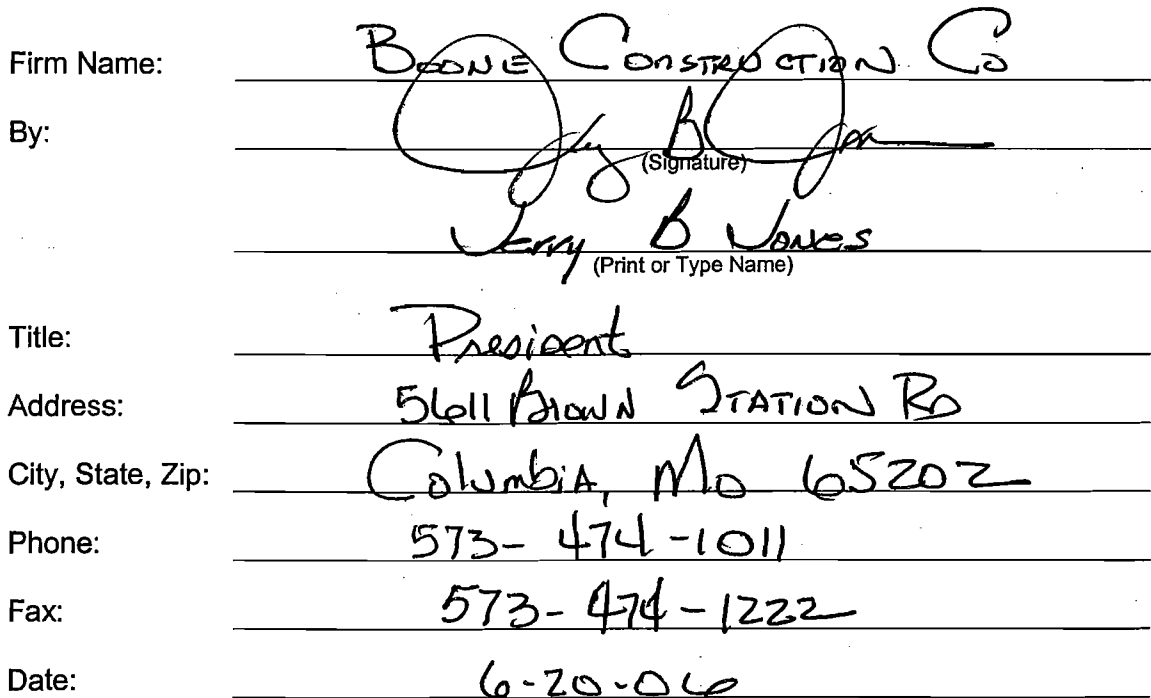 Firm Name: Boone Construction Co
By: Jerry B Jones
(Signature)
Jerry B Jones
(Print or Type Name)
Title: President
Address: 5611 Brown Station Rd
City, State, Zip: Columbia, Mo 65202
Phone: 573-474-1011
Fax: 573-474-1222
Date: 6-20-06